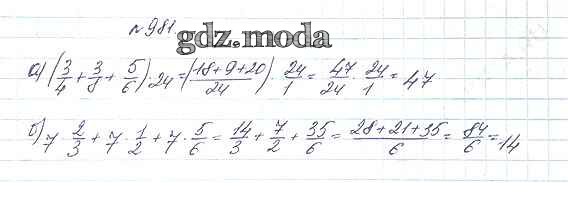 №981.
gdz.moda
а) (3/4 + 3/8 + 5/6) · 24 = (18+9+20 / 24) · 24/1 = 47/24 · 24/1 = 47
б) 7 · 2/3 + 7 · 1/2 + 7 · 5/6 = 14/3 + 7/2 + 35/6 = 28+21+35 / 6 = 84/6 = 14